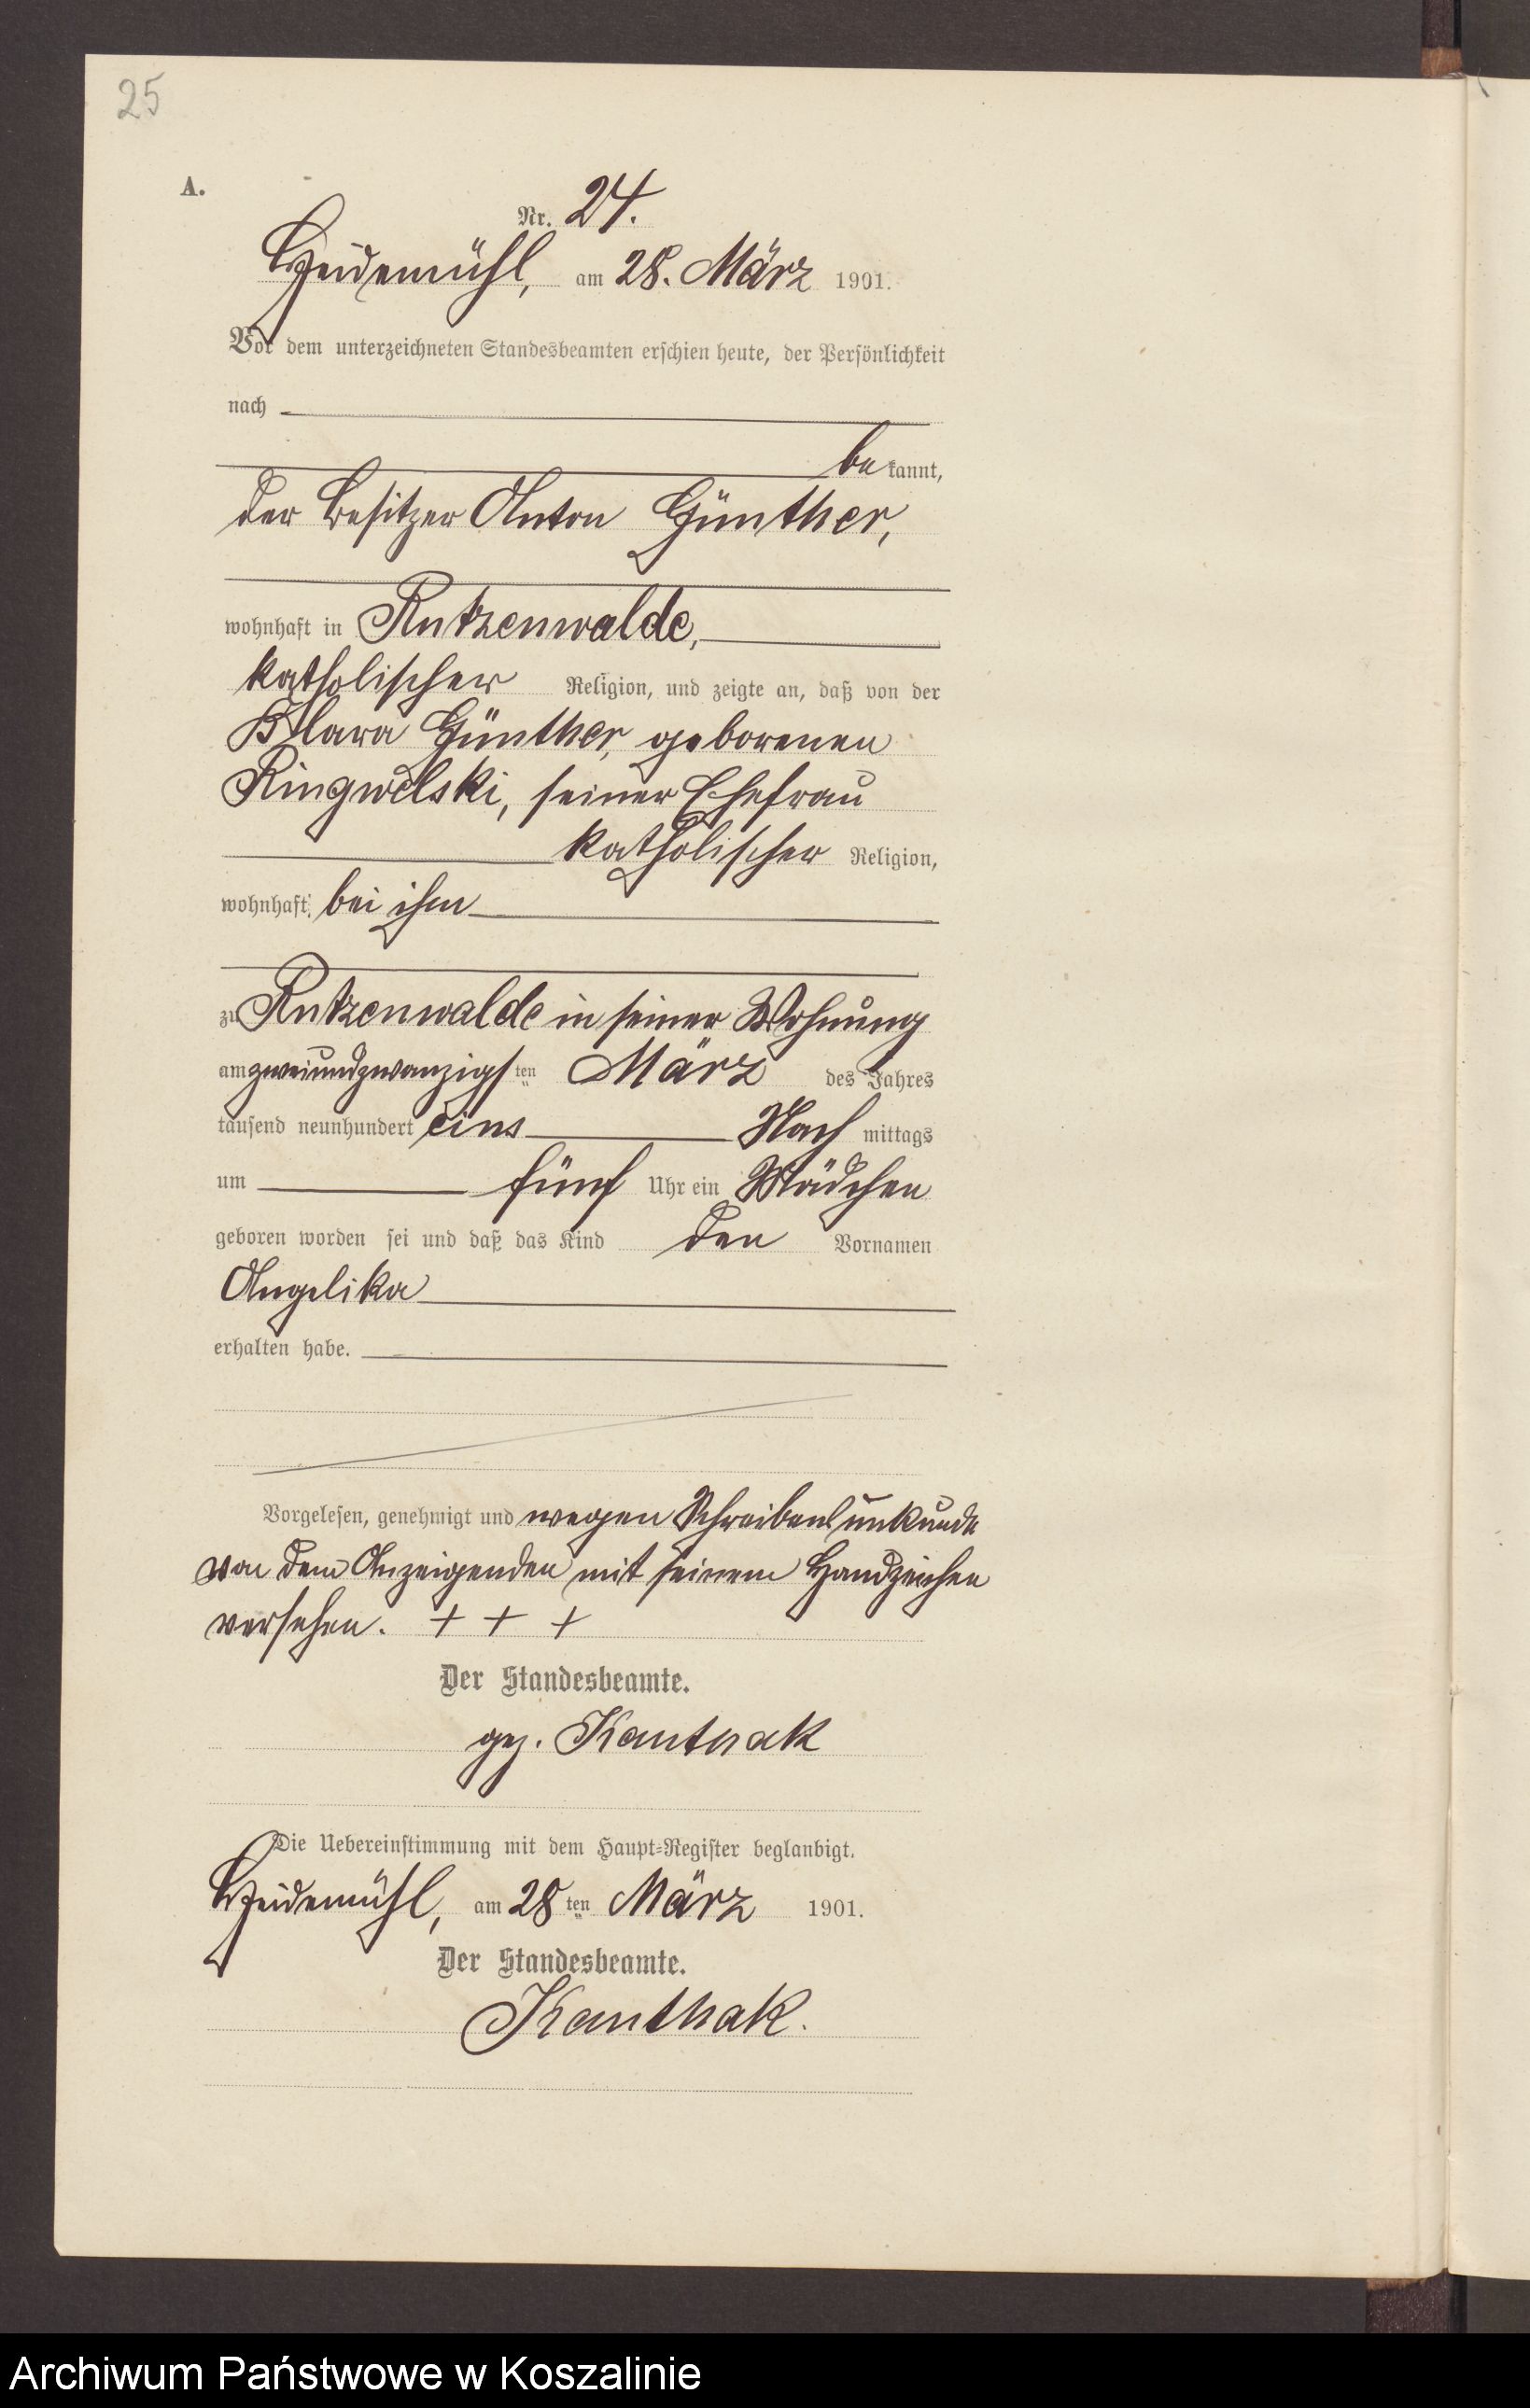 25
A.
Nr. 24.
Heidemühl, am 28. März 1901.
Vor dem unterzeichneten Standesbeamten erschien heute, der Persönlichkeit
nach
be kannt,
der Besitzer Anton Günther,
wohnhaft in Rutzenwalde,
katholischer Religion, und zeigte an, daß von der
Klara Günther, geborenen
Ringwelski, seiner Ehefrau
katholischer Religion,
wohnhaft bei ihm
zu Rutzenwalde in seiner Wohnung
am zweiundzwanzigs ten März des Jahres
tausend neunhundert eins Nach mittags
um fünf Uhr ein Mädchen
geboren worden sei und daß das Kind den Vornamen
Angelika
erhalten habe.
Vorgelesen, genehmigt und wegen Schreibensunkunde
von dem Anzeigenden mit seinem Handzeichen
versehen. + + +
Der Standesbeamte.
gez. Kanthak
Die Uebereinstimmung mit dem Haupt-Register beglaubigt.
Heidemühl, am 28 ten März 1901.
Der Standesbeamte.
Kanthak.
Archiwum Państwowe w Koszalinie